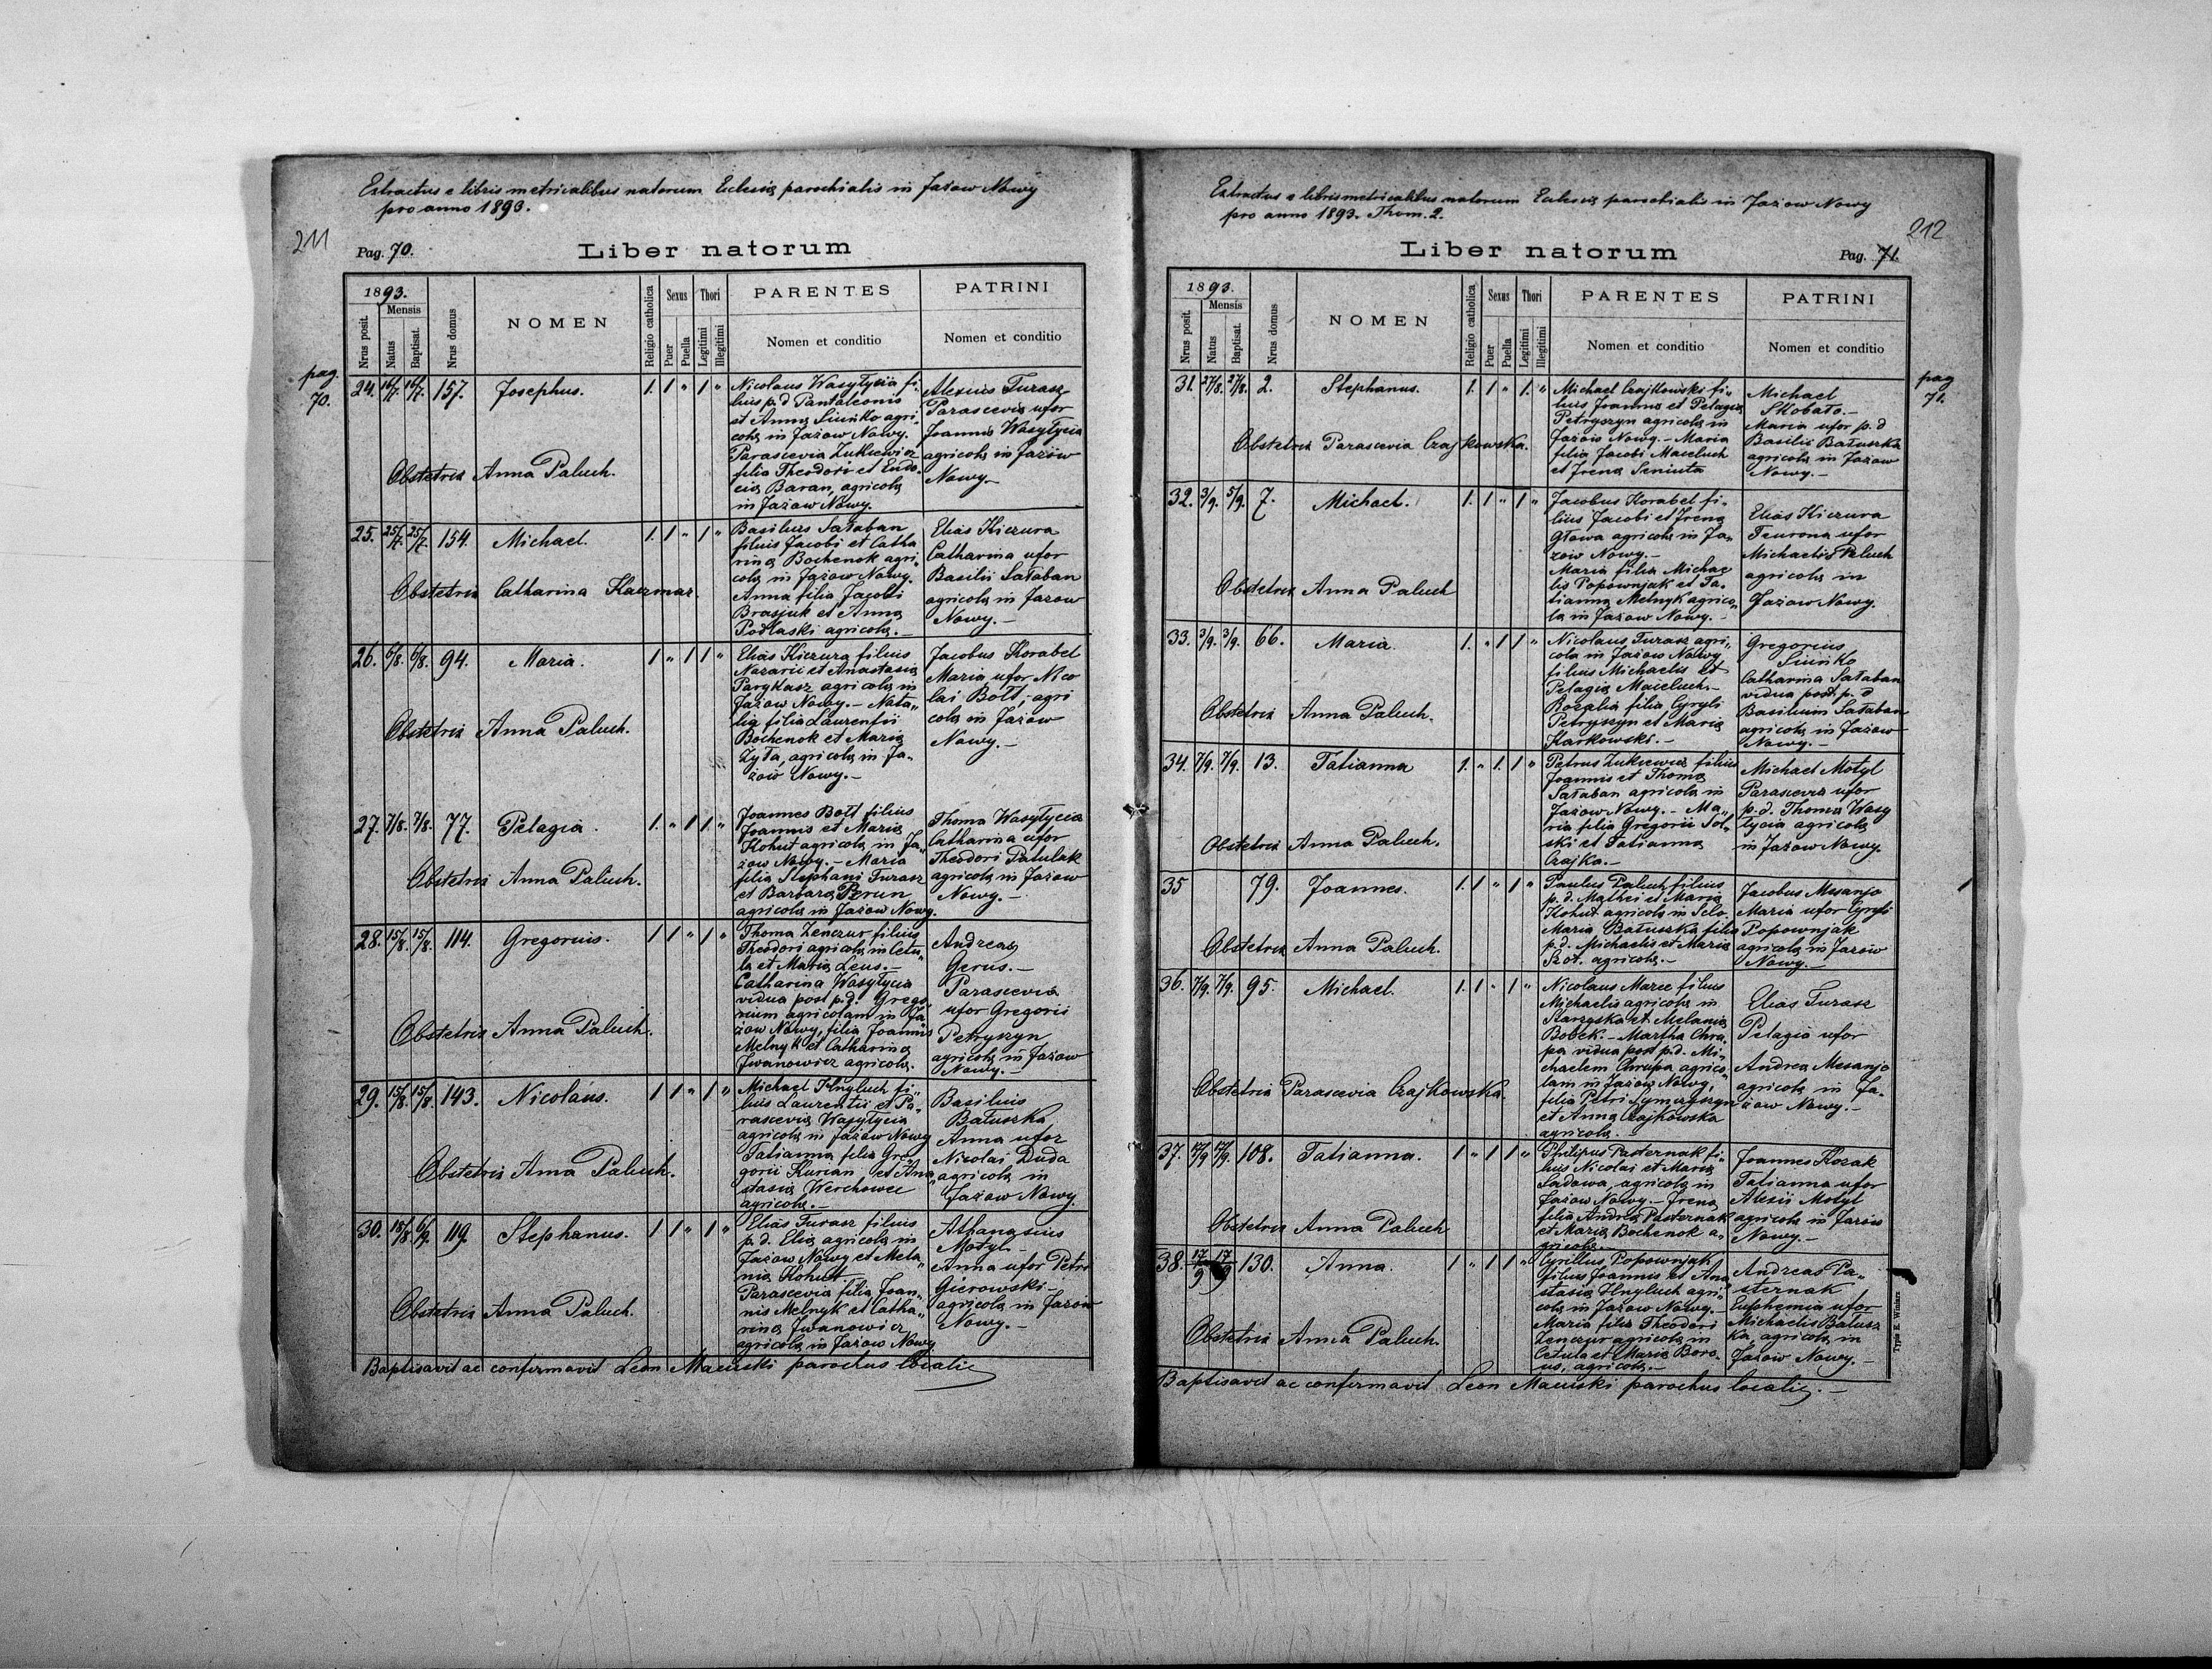 Extractus e libris metricalibus natorum Eclesiæ parochialis in Jażow Nowy
pro anno 1893.
211
Pag. 70.
Liber natorum
1893.
Mensis
Nrus posit.
Natus
Baptisat.
Nrus domus
NOMEN
Religio catholica
Sexus
Puer
Puella
Thori
Legitimi
Illegitimi
PARENTES
Nomen et conditio
PATRINI
Nomen et conditio
pag.
70.
24. 16/7. 16/7. 157. Josephus. 1. 1 " 1 "
Nicolaus Wasyłycia fi-
lius p.d Pantaleonis
et Anna Siuńko agri-
colæ in Jażow Nowy.
Parascevia Łukiewicz
filia Theodori et Eudo-
ciæ Baran, agricolæ
in Jażow Nowy.
Alexius Turasz
Parascevia uxor
Joannis Wasyłycia
agricolæ in Jażow
Nowy.-
Obstetrix Anna Paluch.
25. 25/7. 25/7. 154. Michael. 1. 1 " 1 "
Basilius Sałaban
filius Jacobi et Catha
rinæ Bochenok agri-
colæ in Jażow Nowy.
Anna filia Jacobi
Brasjuk et Anna
Podłaski agricolæ.-
Elias Kiczura
Catharina uxor
Basilii Sałaban
agricolæ in Jażow
Nowy.-
Obstetrix Catharina Kaczmar.
26. 6/8. 6/8. 94. Maria. 1 " 1 1 "
Elias Kiczura filius
Nazarii et Anastasiæ
Parykasz agricolæ in
Jażow Nowy.- Nata-
lia filia Laurentii
Bochenok et Mariæ
Zyła, agricolæ in Ja-
żow Nowy.-
Jacobus Korabel
Maria uxor Nico
lai Bołt, agri
colæ in Jażow
Nowy.-
Obstetrix Anna Paluch.
27. 7/8. 7/8. 77. Pelagia. 1. " 1 1 "
Joannes Bołt filius
Joannis et Mariæ
Kohut agricolæ in Ja-
żow Nowy.- Maria
filia Stephani Turasz
et Barbaræ Perun
agricolæ in Jażow Nowy.
Thoma Wasyłycia
Catharina uxor
Theodori Patulak
agricolæ in Jażow
Nowy.-
Obstetrix Anna Paluch.
28. 15/8. 15/8. 114. Gregorius. 1 1 " 1 "
Thoma Zenczur filius
Theodori agricolæ in Cetu-
la et Mariæ Leus.-
Catharina Wasyłycia
vidua post p.d. Grego-
rium agricolam in Ja-
żow Nowy, filia Joannis
Melnyk et Catharinæ
Iwanowicz agricolæ.
Andreas
Gerus.-
Parascevia
uxor Gregorii
Petryszyn
agricolæ in Jażow
Nowy.-
Obstetrix Anna Paluch.
29. 15/8. 15/8. 143. Nicolaus. 1 1 " 1 "
Michael Hnyluch fi-
lius Laurentii et Pa-
rasceviæ Wasyłycia
agricolæ in Jażow Nowy
Tatianna filia Gre-
gorii Kurian et Ana-
stasiæ Werchowec
agricolæ.-
Basilius
Batuszka
Anna uxor
Nicolai Duda
agricolæ in
Jażow Nowy.
Obstetrix Anna Paluch.
30. 18/8 6/9. 119. Stephanus. 1 1 " 1 "
Elias Turasz filius
p.d. Eliæ agricolæ in
Jażow Nowy et Mela-
niæ Kohut
Parascevia filia Joan-
nis Melnyk et Catha-
rinæ Iwanowicz
agricolæ in Jażow Nowy
Athanasius
Motyl-
Anna uxor Petri
Gierowski-
agricolæ in Jażow
Nowy.-
Obstetrix Anna Paluch.
Baptisavit ac confirmavit Leon Maciurski parochus localis
Extractus e libris metricalibus natorum Eclesiæ parochialis in Jażow Nowy
pro anno 1893. Thom. 2.
212
Liber natorum
Pag. 71.
1893.
Mensis
Nrus posit.
Natus
Baptisat.
Nrus domus
NOMEN
Religio catholica
Sexus
Puer
Puella
Thori
Legitimi
Illegitimi
PARENTES
Nomen et conditio
PATRINI
Nomen et conditio
pag
71.
31. 27/8. 27/8. 2. Stephanus. 1. 1 " 1. "
Michael Czajkowski fi-
lius Joannis et Pelagiæ
Petryszyn agricolæ in
Jażow Nowy.- Maria
filia Jacobi Macieluch
et Irenæ Seniuta
Michael
Skobało.-
Maria uxor p.d
Basilii Batuszka
agricolæ in Jażow
Nowy.-
Obstetrix Parascevia Czajkowska.
32. 3/9. 5/9. 7. Michael. 1. 1 " 1 "
Jacobus Korabel fi-
lius Jacobi et Irenæ
Głowa agricolæ in Ja-
żow Nowy.-
Maria filia Michae
lis Popownjak et Ta-
tiannæ Melnyk agrico-
læ in Jażow Nowy.-
Elias Kiczura
Feurona uxor
Michaelis Paluch
agricolæ in
Jażow Nowy.
Obstetrix Anna Paluch
33. 3/9. 3/9. 66. Maria. 1. " 1 1 "
Nicolaus Turasz agri-
cola in Jażow Nowy
filius Michaelis et
Pelagiæ Macieluch.-
Rozalia filia Cyryli
Petryszyn et Mariæ
Karkowski.-
Gregorius
Siuńko
Catharina Sałaban
vidua post p.d
Basilium Sałaban
agricolæ in Jażow
Nowy.-
Obstetrix Anna Paluch.
34. 7/9. 7/9. 13. Tatianna 1. " 1. 1 "
Petrus Łukiewicz filius
Joannis et Thoma
Sałaban agricolæ in
Jażow Nowy.- Ma-
ria filia Gregorii Sol-
ski et Tatianna
Czajka.-
Michael Motyl
Parascevia uxor
p.d. Thoma Wasy
łycia agricolæ
in Jażow Nowy.
Obstetrix Anna Paluch.
35 79. Joannes. 1. 1 " 1 "
Paulus Paluch filius
p.d. Mathei et Mariæ
Kohut agricolæ in Selo.
Maria Batuszka filia
p.d. Michaelis et Mariæ
Szot. agricolæ.-
Jacobus Mesanjo
Maria uxor Cyryli
Popownjak
agricolæ in Jażow
Nowy.-
Obstetrix Anna Paluch.
36. 7/9. 7/9. 95. Michael. 1. 1 " 1 "
Nicolaus Marce filius
Michaelis agricolæ in
et Melaniæ
Bobek.- Martha Chru-
pa vidua post p.d. Mi-
chaelem Chrupa agrico-
lam in Jażow Nowy,
filia Petri
et Annæ Czajkowska
agricolæ.-
Elias Turasz
Pelagia uxor
Andrea Mesanjo
agricolæ in Ja-
żow Nowy.-
Obstetrix Parascevia Czajkowska.
37. 17/9 17/9. 108. Tatianna. 1 " 1 1 "
Philipus Pasternak fi-
lius Nicolai et Mariæ
Sadowa, agricolæ in
Jażow Nowy.- Irena
filia Andreæ Pasternak
et Mariæ Bochenok a-
gricolæ.-
Joannes Kozak
Tatianna uxor
Alexii Motyl
agricolæ in Jażow
Nowy.-
Obstetrix Anna Paluch
38. 17/9 17/9 130. Anna. 1 " 1 1 "
Cyrillus Popownjak
filius Joannis et Ana-
stasiæ Hnyluch agri-
colæ in Jażow Nowy.-
Maria filia Theodori
Zenczur agricolæ in
Cetula et Mariæ Boro-
us, agricolæ.-
Andreas Pa-
sternak
Euphemia uxor
Michaelis Batusz
ka, agricolæ in
Jażow Nowy.-
Obstetrix Anna Paluch.
Typis E. Winiarz
Baptisavit ac confirmavit Leon Maciurski parochus localis.-